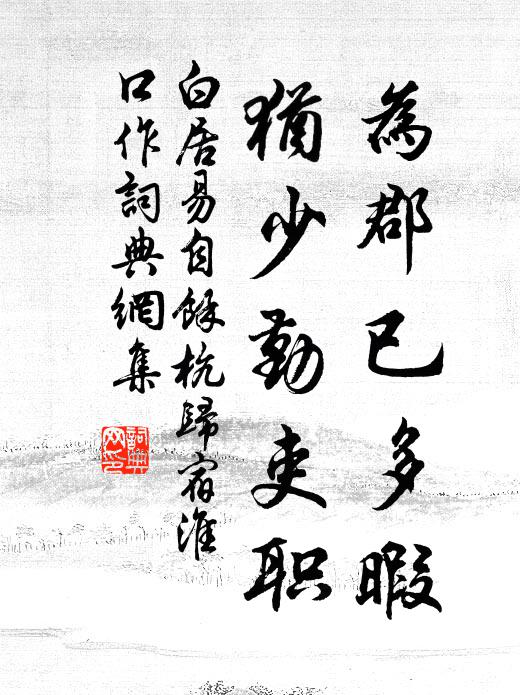 為郡已多暇
猶少勤吏职
白居易自餘杭歸宿淮
口作詞典網集
詞典網印